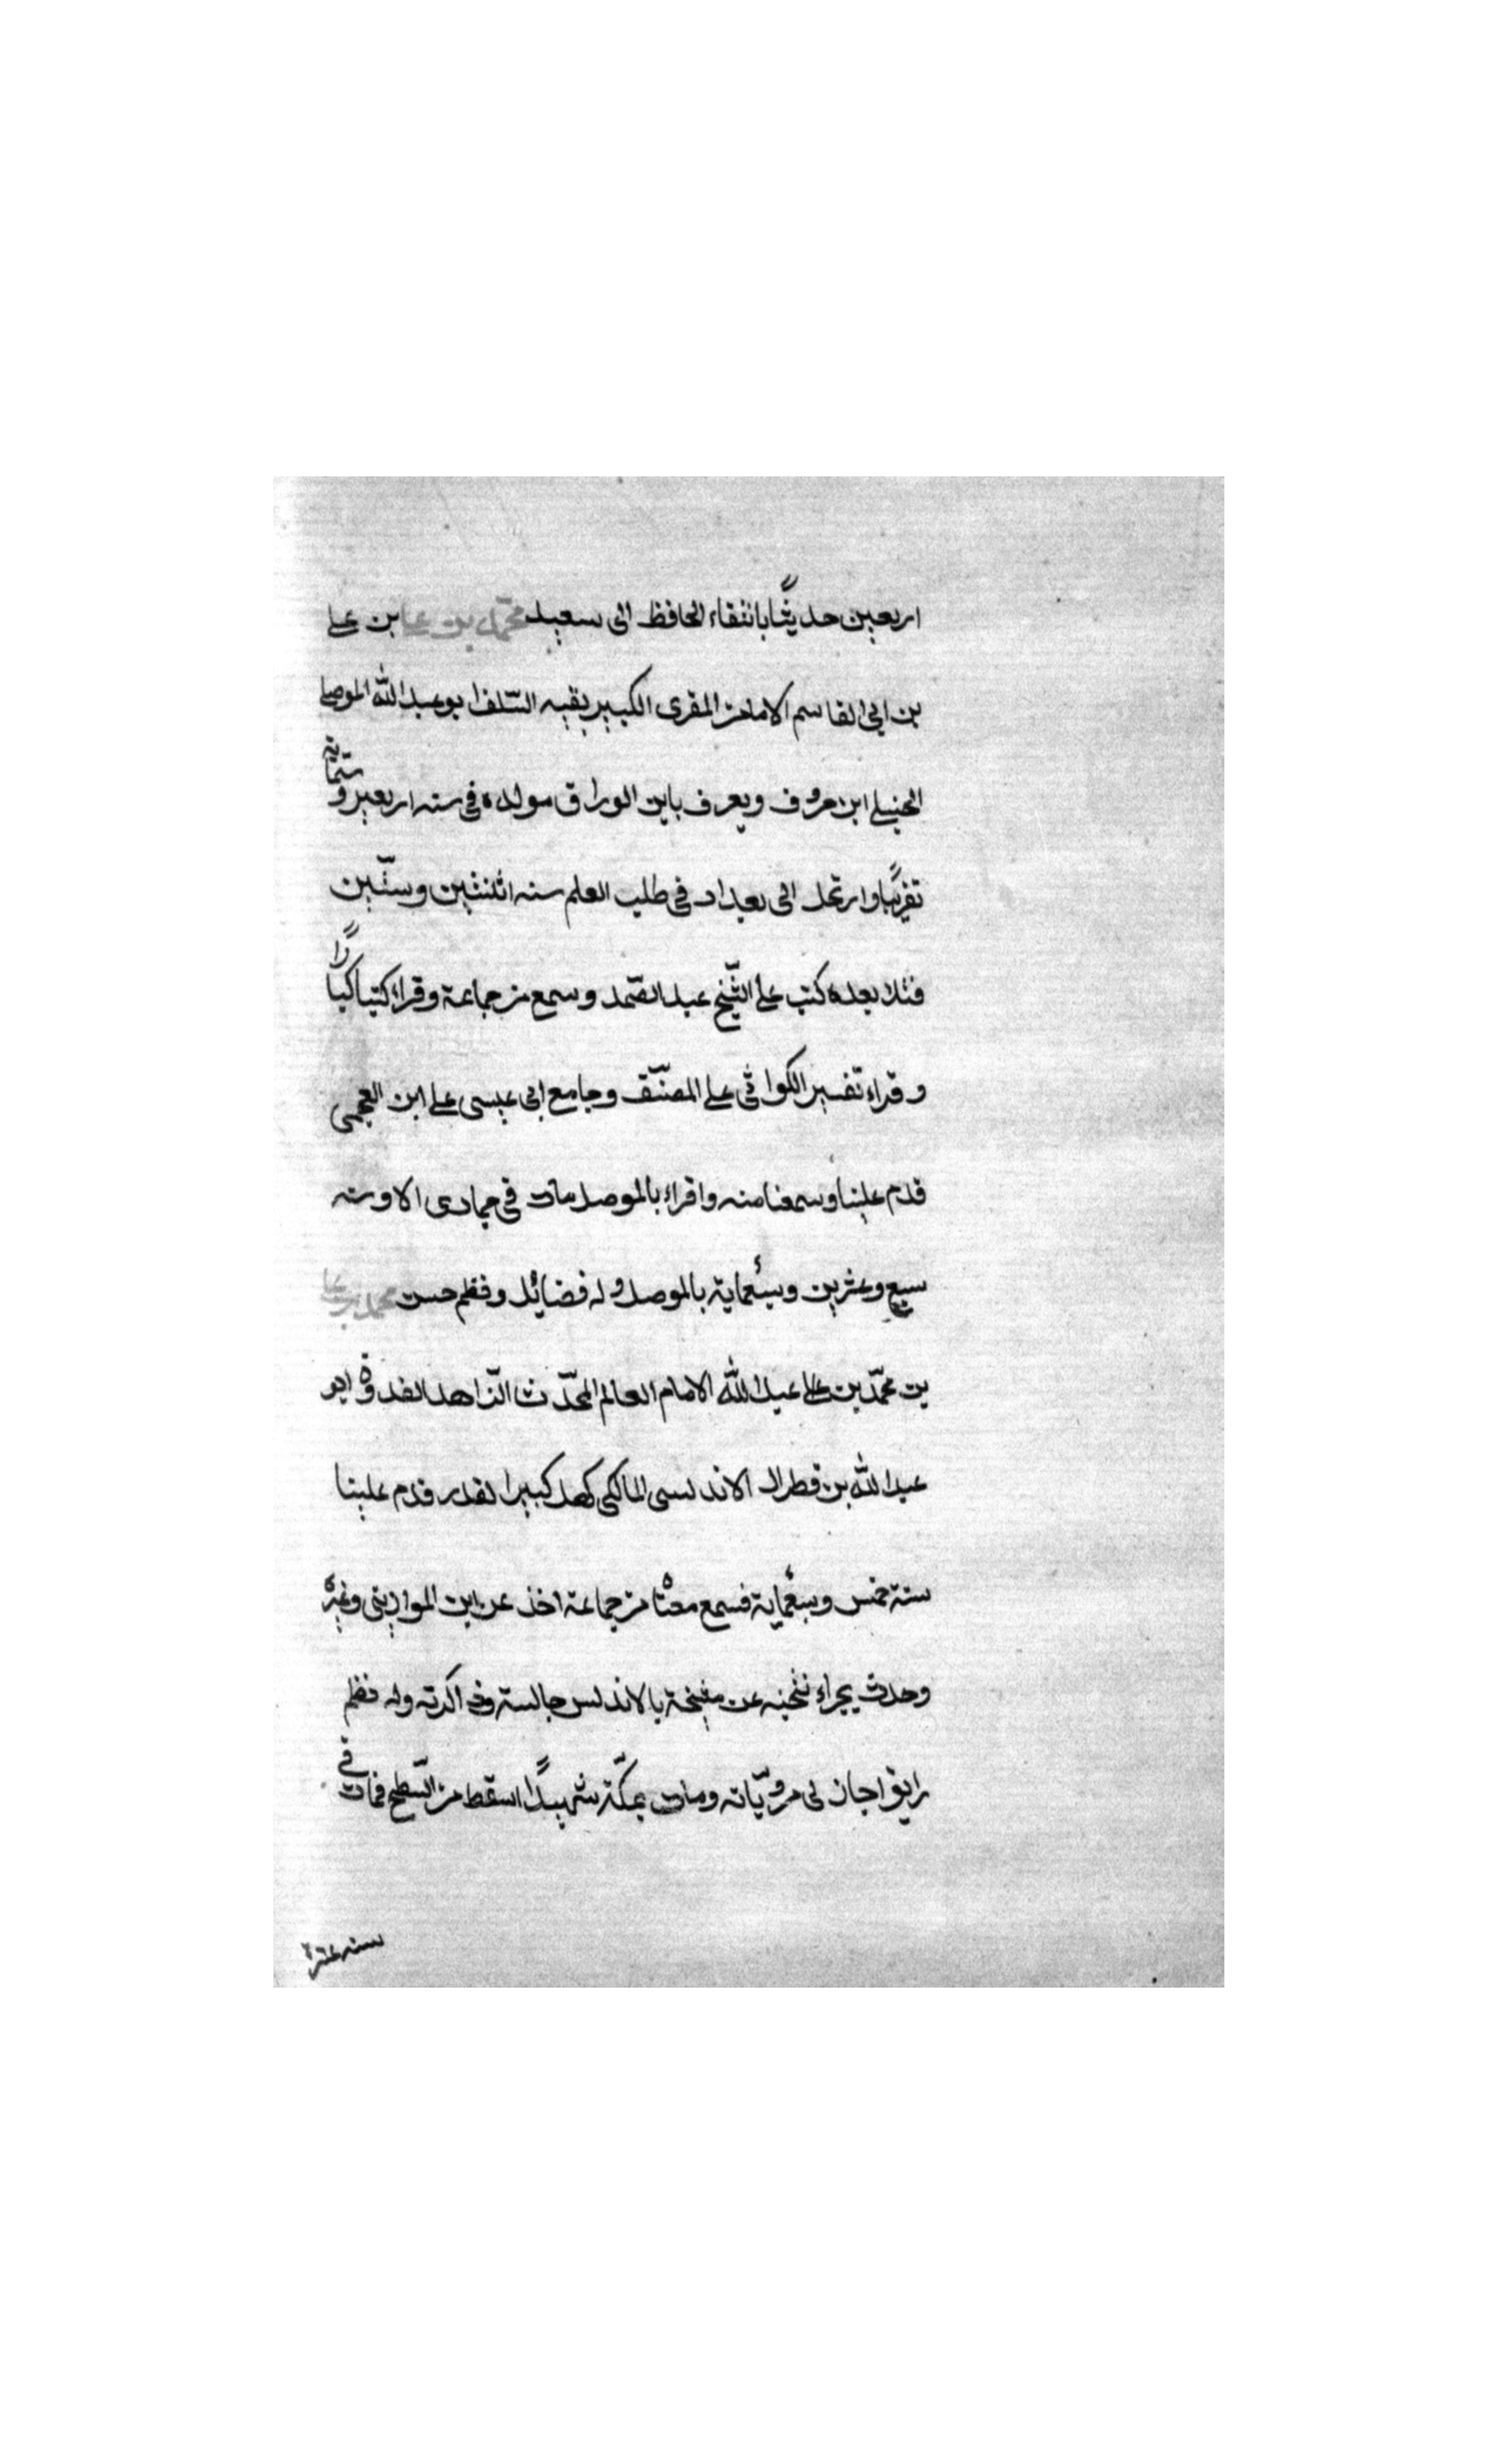 اربعين حديثًا بانتقاء الحافظ ابى سعيد محمّد بن على بن على
بن ابى القاسم الامام المقرى الكبير بقيه السّلف ابو عبد الله الموصلى
الحنبلى ابن خروف ويعرف بابن الوراق مولده فى سنه اربعين وستمائة
تقريبًا وارتحل الى بغداد فى طلب العلم سنه اثنتين وستّين
فتلا بعده كتب على الشّيخ عبد الصّمد وسمع من جماعة وقراء كتبا كبارًا
وقراء تفسير الكواشى على المصنّف وجامع ابى عيسى على ابن العجمى
قدم علينا وسمعنا منه واقراء بالموصل مات فى جمادى الاو سنه
سبع وعشرين وسبعماية بالموصل وله فضائل ونظم حسن محمد بن على
بن محمّد بن على عبد الله الامام العالم المحدّث الزّاهد القدوة ابو
عبد الله بن قطرال الاندلسى المالكى كهل كبير القدر قدم علينا
سنة خمس وسبعماية فسمع معنا من جماعة اخذ عن ابن الموازينى وغيره
وحدث بجراء عن مشيخة بالاندلس جالسته وذاكرته وله نظم
رايق اجاز لى مروّياته ومات بمكّة شهيدًا سقط من السّطح فمات فى
سنه عشرة